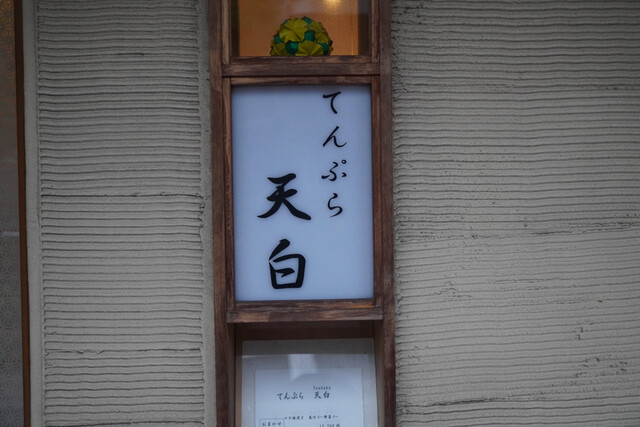 てんぷら
天白
てんぷら 天白